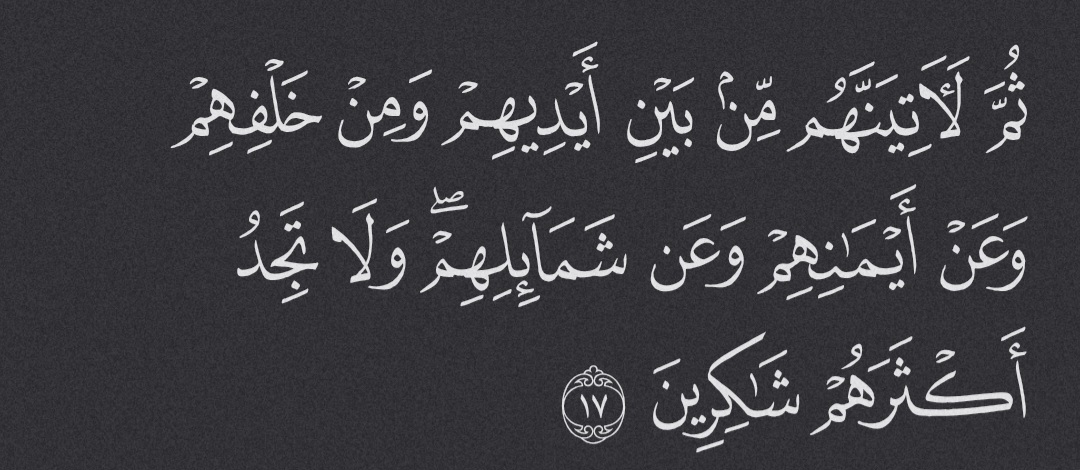 ثُمَّ لَأَتِيَنَّهُم مِّنۢ بَيۡنِ أَيۡدِيهِمۡ وَمِنۡ خَلۡفِهِمۡ
وَعَنۡ أَيۡمَٰنِهِمۡ وَعَن شَمَآئِلِهِمۡۖ وَلَا تَجِدُ
أَكۡثَرَهُمۡ شَٰكِرِينَ ١٧